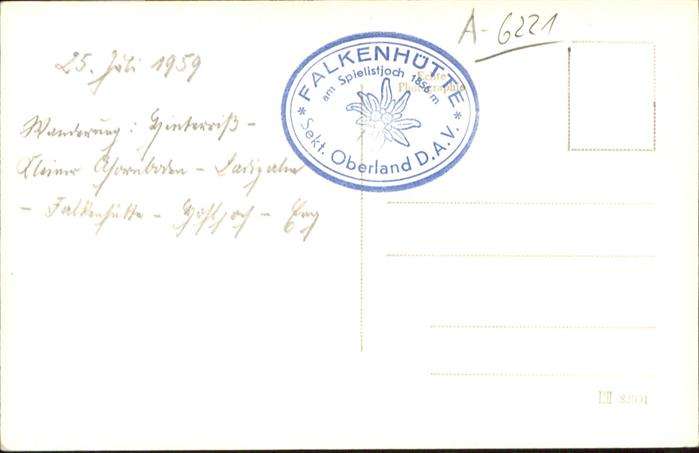 A-6221
25. Juli 1959
* FALKENHÜTTE *
am Spielistjoch 1856 m
Sekt. Oberland D.A.V.
Echte
Photographie
Wanderung: Hinterriß -
Kleiner Ahornboden - Ladizalm
- Falkenhütte - Hohljoch - Eng